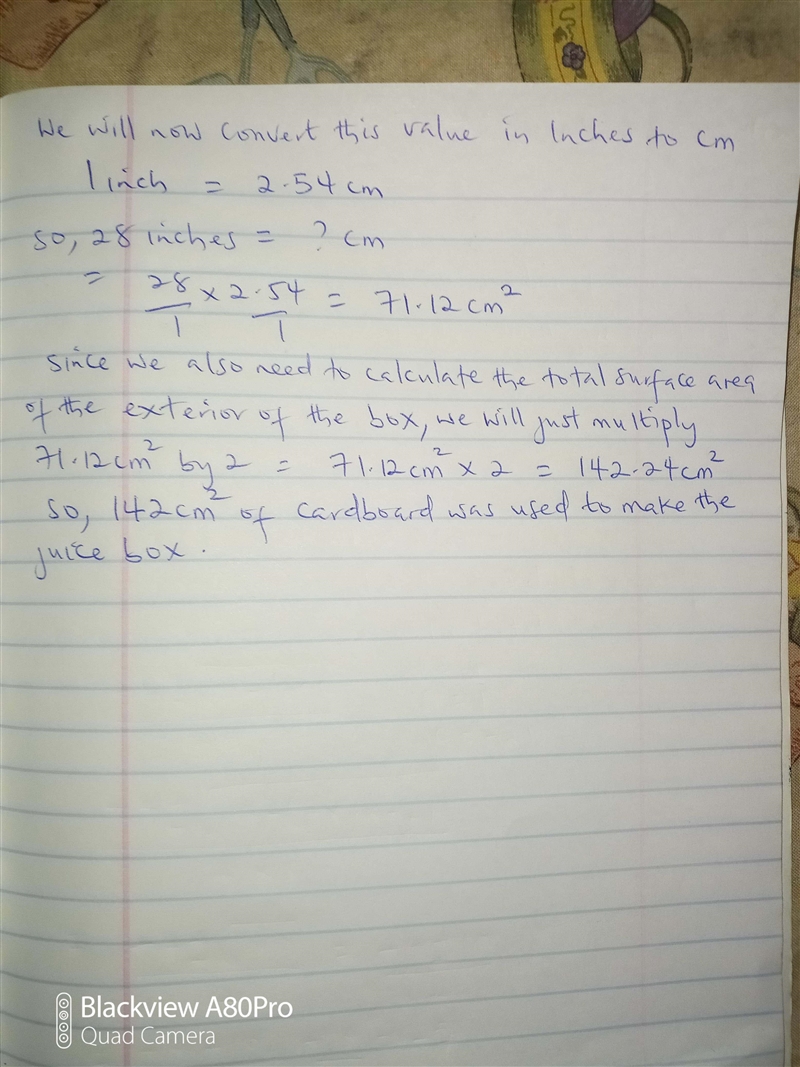 We will now convert this value in Inches to cm
1 inch = 2.54 cm
so, 28 inches = ? cm
= 28/1 × 2.54/1 = 71.12 cm²
Since we also need to calculate the total surface area
of the exterior of the box, we will just multiply
71.12cm² by 2 = 71.12cm² × 2 = 142.24cm²
so, 142cm² of cardboard was used to make the
juice box.
Blackview A80Pro
Quad Camera